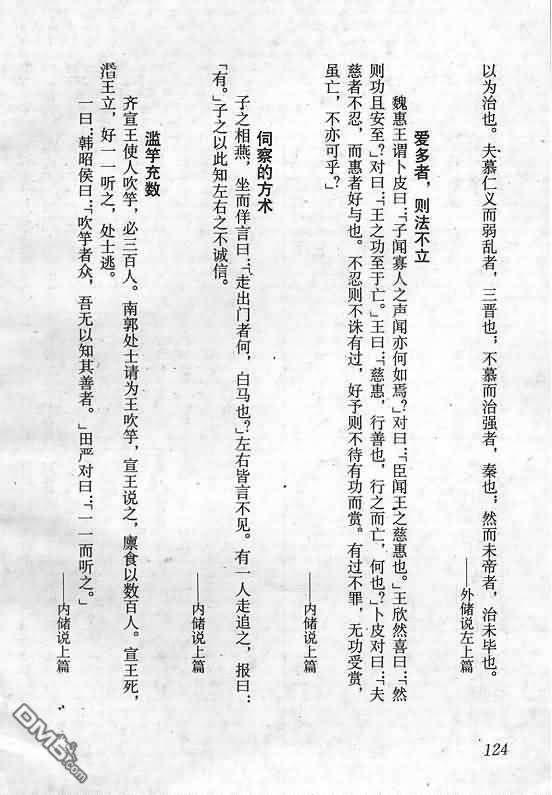 以为治也。夫慕仁义而弱乱者，三晋也；不慕而治强者，秦也；然而未帝者，治未毕也。
——外储说左上篇
爱多者，则法不立
魏惠王谓卜皮曰：「子闻寡人之声闻亦何如焉？」对曰：「臣闻王之慈惠也。」王欣然喜曰：「然
则功且安至？」对曰：「王之功至于亡。」王曰：「慈惠，行善也，行之而亡，何也？」卜皮对曰：「夫
慈者不忍，而惠者好与也。不忍则不诛有过，好予则不待有功而赏。有过不罪，无功受赏，
虽亡，不亦可乎？」
——内储说上篇
伺察的方术
子之相燕，坐而佯言曰：「走出门者何，白马也？」左右皆言不见。有一人走追之，报曰：
「有。」子之以此知左右之不诚信。
——内储说上篇
滥竽充数
齐宣王使人吹竽，必三百人。南郭处士请为王吹竽，宣王说之，廪食以数百人。宣王死，
湣王立，好一一听之，处士逃。
一曰：韩昭侯曰：「吹竽者众，吾无以知其善者。」田严对曰：「一一而听之。」
——内储说上篇
124
DM5.com